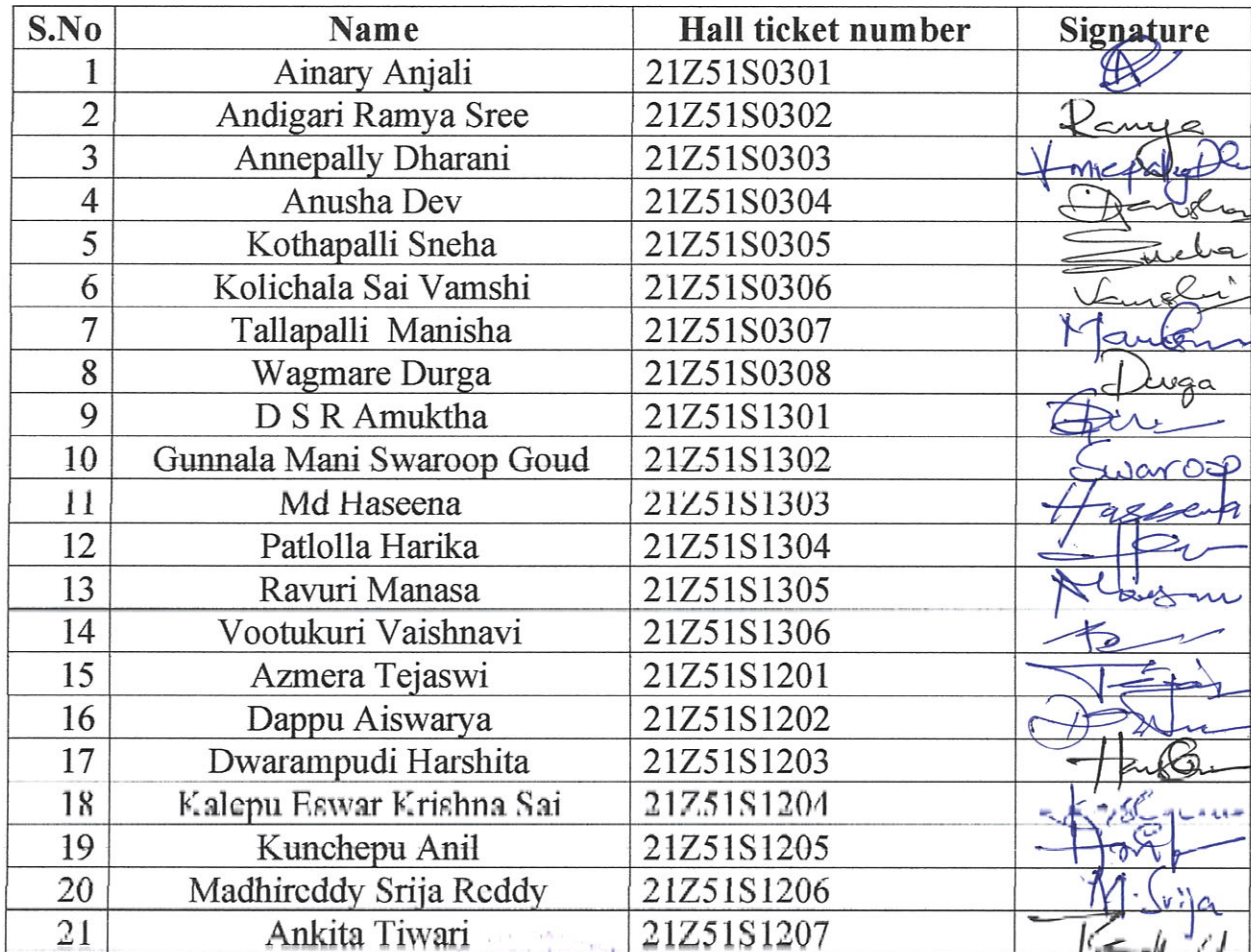 S.No Name Hall ticket number Signature
1 Ainary Anjali 21Z51S0301
2 Andigari Ramya Sree 21Z51S0302 Ramya
3 Annepally Dharani 21Z51S0303
4 Anusha Dev 21Z51S0304
5 Kothapalli Sneha 21Z51S0305 Sneha
6 Kolichala Sai Vamshi 21Z51S0306 Vamshi
7 Tallapalli Manisha 21Z51S0307
8 Wagmare Durga 21Z51S0308 Durga
9 D S R Amuktha 21Z51S1301
10 Gunnala Mani Swaroop Goud 21Z51S1302 Swaroop
11 Md Haseena 21Z51S1303 Haseena
12 Patlolla Harika 21Z51S1304
13 Ravuri Manasa 21Z51S1305
14 Vootukuri Vaishnavi 21Z51S1306
15 Azmera Tejaswi 21Z51S1201
16 Dappu Aiswarya 21Z51S1202
17 Dwarampudi Harshita 21Z51S1203
18 Kalepu Eswar Krishna Sai 21Z51S1204
19 Kunchepu Anil 21Z51S1205
20 Madhireddy Srija Reddy 21Z51S1206 M.Srija
21 Ankita Tiwari 21Z51S1207